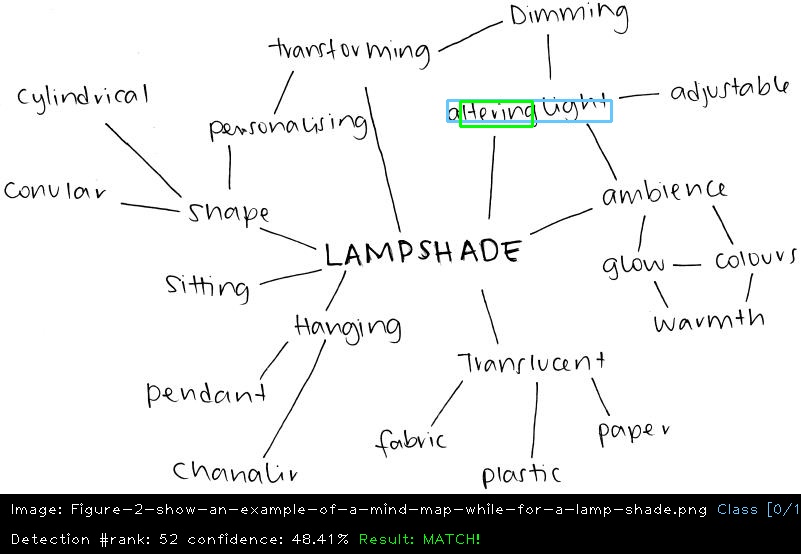 Dimming
transforming
Cylindrical
adjustable
altering light
personalising
conular
ambience
shape
LAMPSHADE
glow
colours
Sitting
Hanging
warmth
Translucent
pendant
fabric
paper
chanalir
plastic
Image: Figure-2-show-an-example-of-a-mind-map-while-for-a-lamp-shade.png Class [0/1
Detection #rank: 52 confidence: 48.41% Result: MATCH!